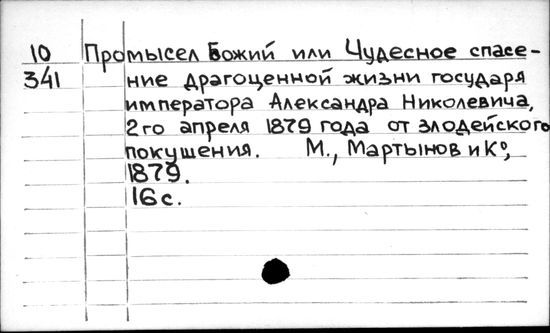 10 Промысел Божий или Чудесное спасе-
341 ние драгоценной жизни государя
императора Александра Николевича,
2го апреля 1879 года от злодейского
покушения. М., Мартынов и Кº,
1879.
16 с.